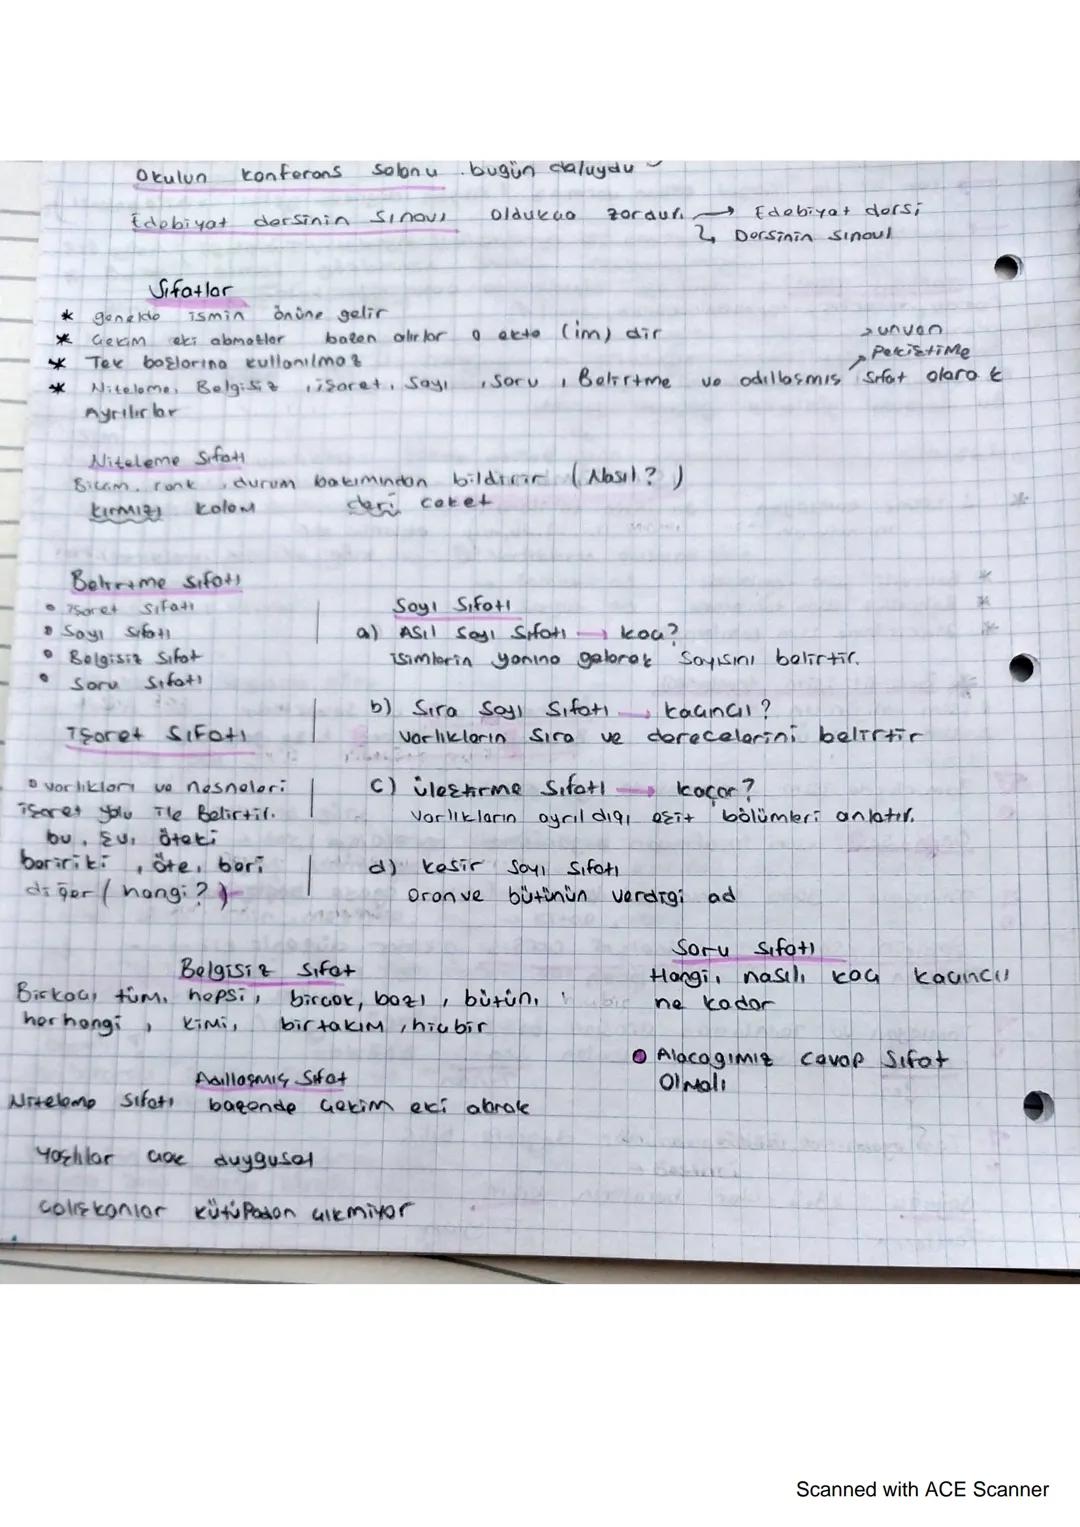 Okulun konferans salonu bugün doluydu
Edebiyat dersinin sınavı oldukça zordur. → Edebiyat dersi
↳ Dersinin sınavı
Sıfatlar
* genelde ismin önüne gelir
* Çekim eki almazlar bazen alırlar o ekte (im) dir
* Tek başlarına kullanılmaz
→ unvan
→ Pekiştirme
* Niteleme, Belgisiz, işaret, Sayı, Soru, Belirtme ve adıllaşmış Sıfat olarak
Ayrılırlar
Niteleme Sıfatı
Biçim, renk, durum bakımından bildirir (Nasıl?)
kırmızı kalem deri ceket
Belirtme sıfatı
• işaret sıfatı
• Sayı sıfatı
• Belgisiz Sıfat
• Soru Sıfatı
İşaret Sıfatı
• varlıkları ve nesneleri
işaret yolu ile Belirtir.
bu, şu, öteki
beririki, öte, beri
diğer (hangi?)
Sayı Sıfatı
a) Asıl Sayı Sıfatı → kaç?
isimlerin yanına gelerek Sayısını belirtir.
b) Sıra Sayı Sıfatı → kaçıncı?
varlıkların Sıra ve derecelerini belirtir
c) üleştirme Sıfatı → kaçar?
varlıkların ayrıldığı eşit bölümleri anlatır.
d) kesir Sayı Sıfatı
oran ve bütünün verdiği ad
Belgisiz Sıfat
Birkaç, tüm, hepsi, birçok, bazı, bütün,
herhangi, kimi, birtakım, hiçbir
Soru Sıfatı
Hangi, nasıl, kaç kaçıncı
ne kadar
• Alacağımız cevap Sıfat
Olmalı
Adıllaşmış Sıfat
Niteleme Sıfatı bazende çekim eki alarak
Yaşlılar çok duygusal
Çalışkanlar kütüpaden çıkmıyor
Scanned with ACE Scanner